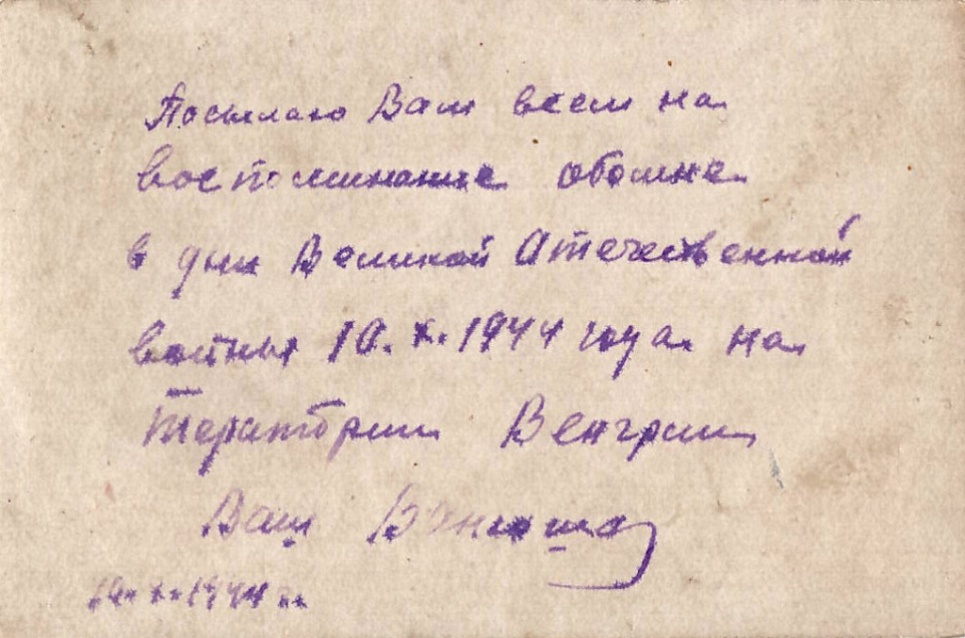 Посылаю Вам всем на
воспоминание обомне
в дни Великой Отечественной
войны 10.X.1944 года на
тератории Венгрии
Ваш Ванюша
10.X.1944 г.